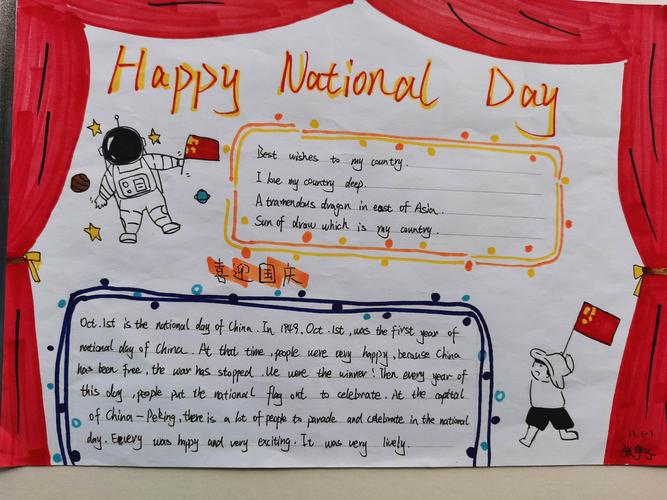 Happy National Day
Best wishes to my country.
I love my country deep.
A tramendous dragon in east of Asia.
Sun of draw which is my country.
喜迎国庆
Oct. 1st is the national day of China. In 1949, Oct. 1st, was the first year of
national day of China. At that time, people were very happy, because China
has been free, the war has stopped. We were the winner! Then every year of
this day, people put the national flag out to celebrate. At the capital
of China - Peking, there is a lot of people to parade and celebrate in the national
day. Eevery was happy and very exciting. It was very lively.